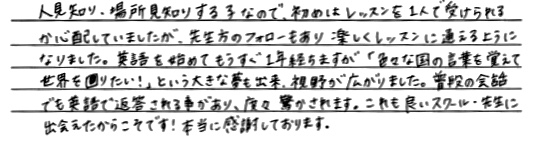 人見知り・場所見知りする子なので、初めはレッスンを1人で受けられる
か心配していましたが、先生方のフォローもあり楽しくレッスンに通えるように
なりました。英語を始めてもうすぐ1年経ちますが「色々な国の言葉を覚えて
世界を回りたい!」という大きな夢も出来、視野が広がりました。普段の会話
でも英語で返答される事があり、度々驚かされます。これも良いスクール・先生に
出会えたからこそです!本当に感謝しております。